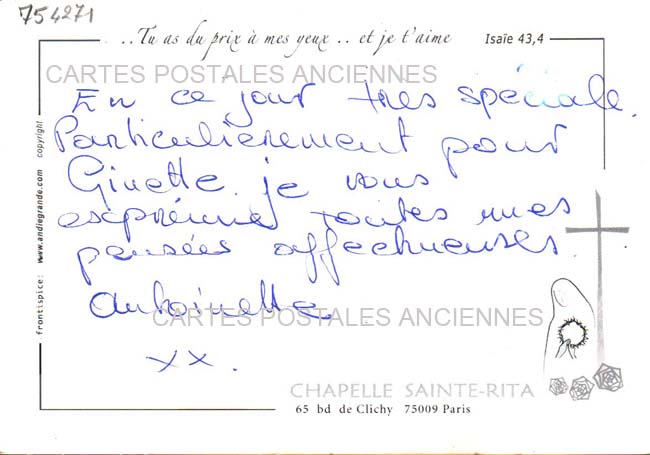 754271
..Tu as du prix à mes yeux .. et je t'aime
Isaïe 43,4
CARTES POSTALES ANCIENNES
En ce jour très spéciale.
Particulièrement pour
Ginette. je vous
exprime toutes mes
pensées affectueuses.
Antoinette
CARTES POSTALES ANCIENNES
xx.
CHAPELLE SAINTE-RITA
65 bd de Clichy 75009 Paris
frontispice: www.andregrande.com copyright